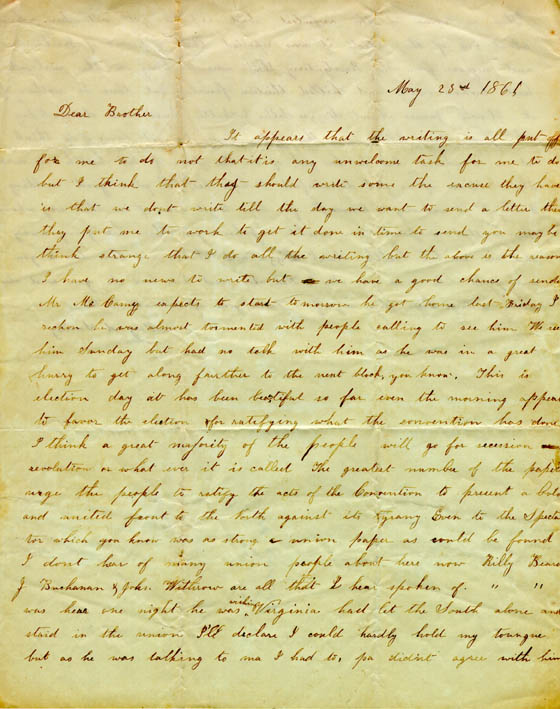 May 23rd 1861
Dear Brother
It appears that the writing is all put off
for me to do not that it is any unwelcome task for me to do
but I think that they should write some the excuse they have
is that we dont write till the day we want to send a letter then
they put me to work to get it done in time to send you may to
think strange that I do all the writing but the above is the reason
I have no news to write but we have a good chance of sending
Mr Mc Camy expects to start tomorrow he got home last Friday I
reckon he was almost tormented with people calling to see him We seen
him Sunday but had no talk with him as he was in a great
hurry to get along farther to the next block, you know. This is
election day at has been beutiful so far even the morning appears
to favor the election for ratifying what the convention has done
I think a great majority of the people will go for secession
revolution or what ever it is called The greatest number of the papers
urge the people to ratify the acts of the Convention to present a bold
and united front to the North against its tyrany Even to the Specta
tor which you know was as strong a union paper as could be found
I dont hear of many union people about here now Billy Beard
J Buchanan & John Withrow are all that I hear spoken of. " "
was hear one night he was wishing Virginia had let the South alone and
staid in the union I'll declare I could hardly hold my toungue
but as he was talking to ma I had to, pa didn't agree with him